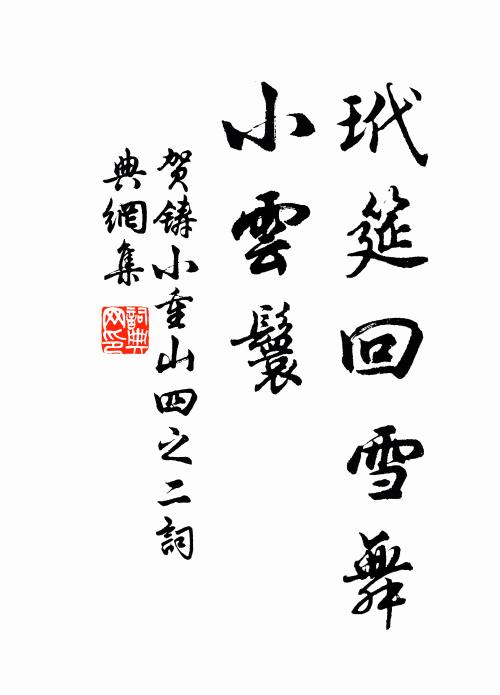 玳筵回雪舞
小雲鬟
賀鑄小重山四之二詞
典網集
詞典
网印